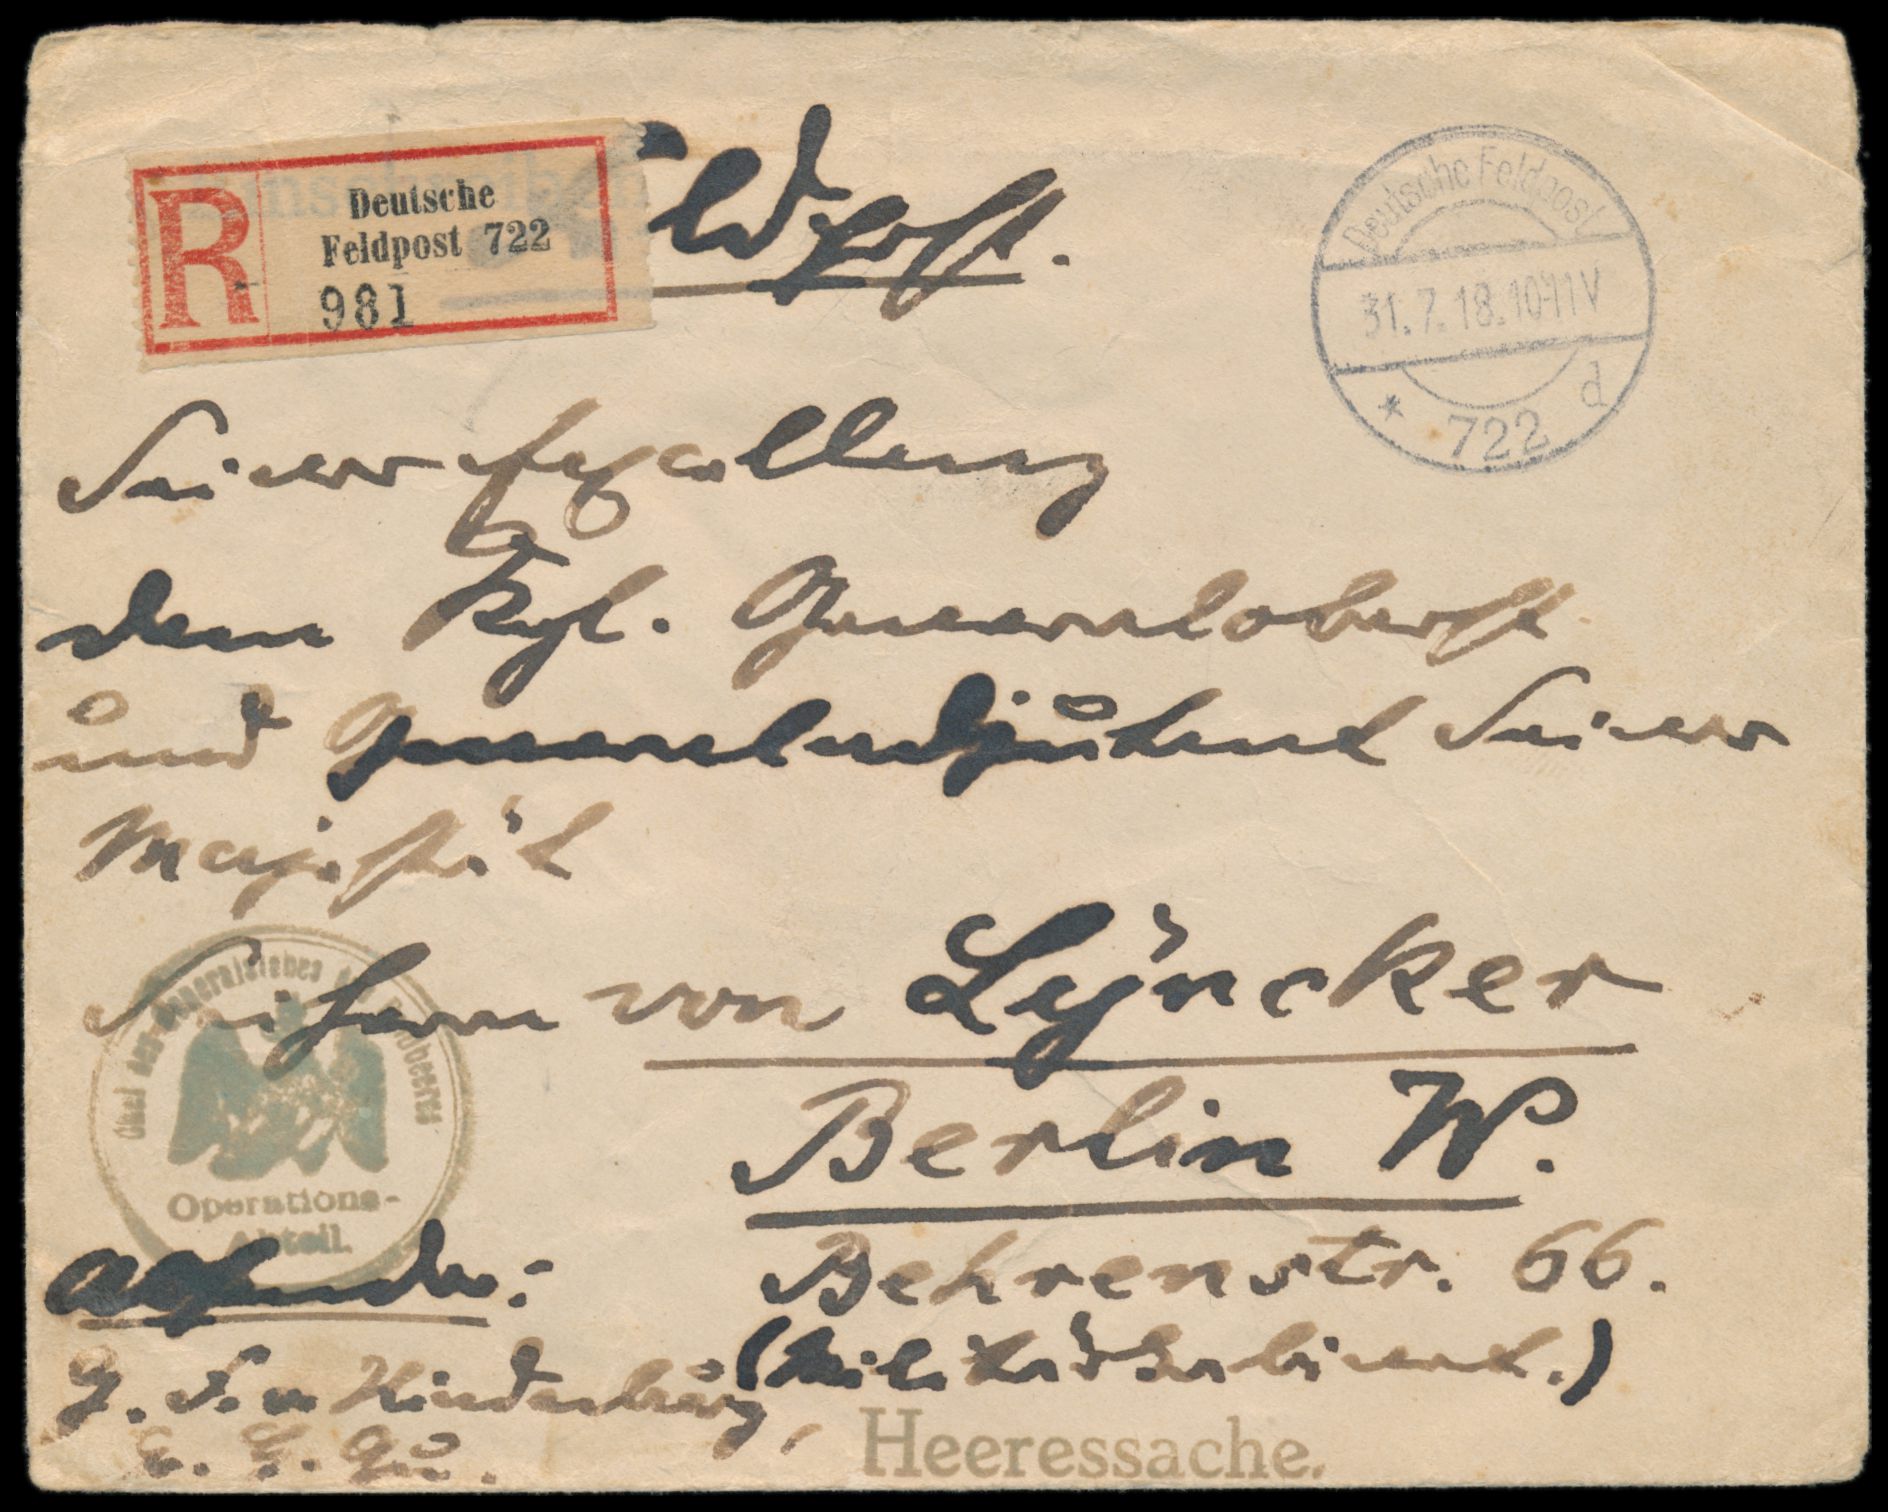 Einschreiben
Feldpost.
R
Deutsche
Feldpost 722
981
Deutsche Feldpost
31.7.18.10-11V
* 722 d
Seiner Exzellenz
dem Kgl. Generaloberst
und Generaladjutant Seiner
Majestät
Freiherrn von Lÿncker
Berlin W.
Behrenstr. 66.
(Militärkabinett.)
Chef des Generalstabes des Feldheeres
Operations-
Abteil.
Absender:
G. F. v. Hindenburg,
Gr. H. Qu.
Heeressache.